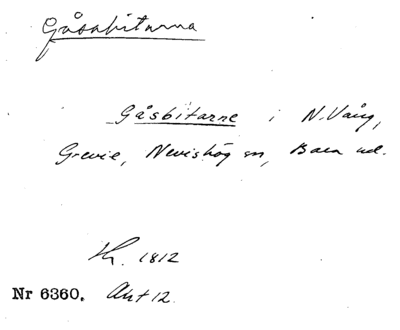 Gåsabitarna
Gåsbitarne i N. Vång,
Grevie, Nevishög sn, Bara hd.
Kh. 1812
Nr 6360. Akt 12.